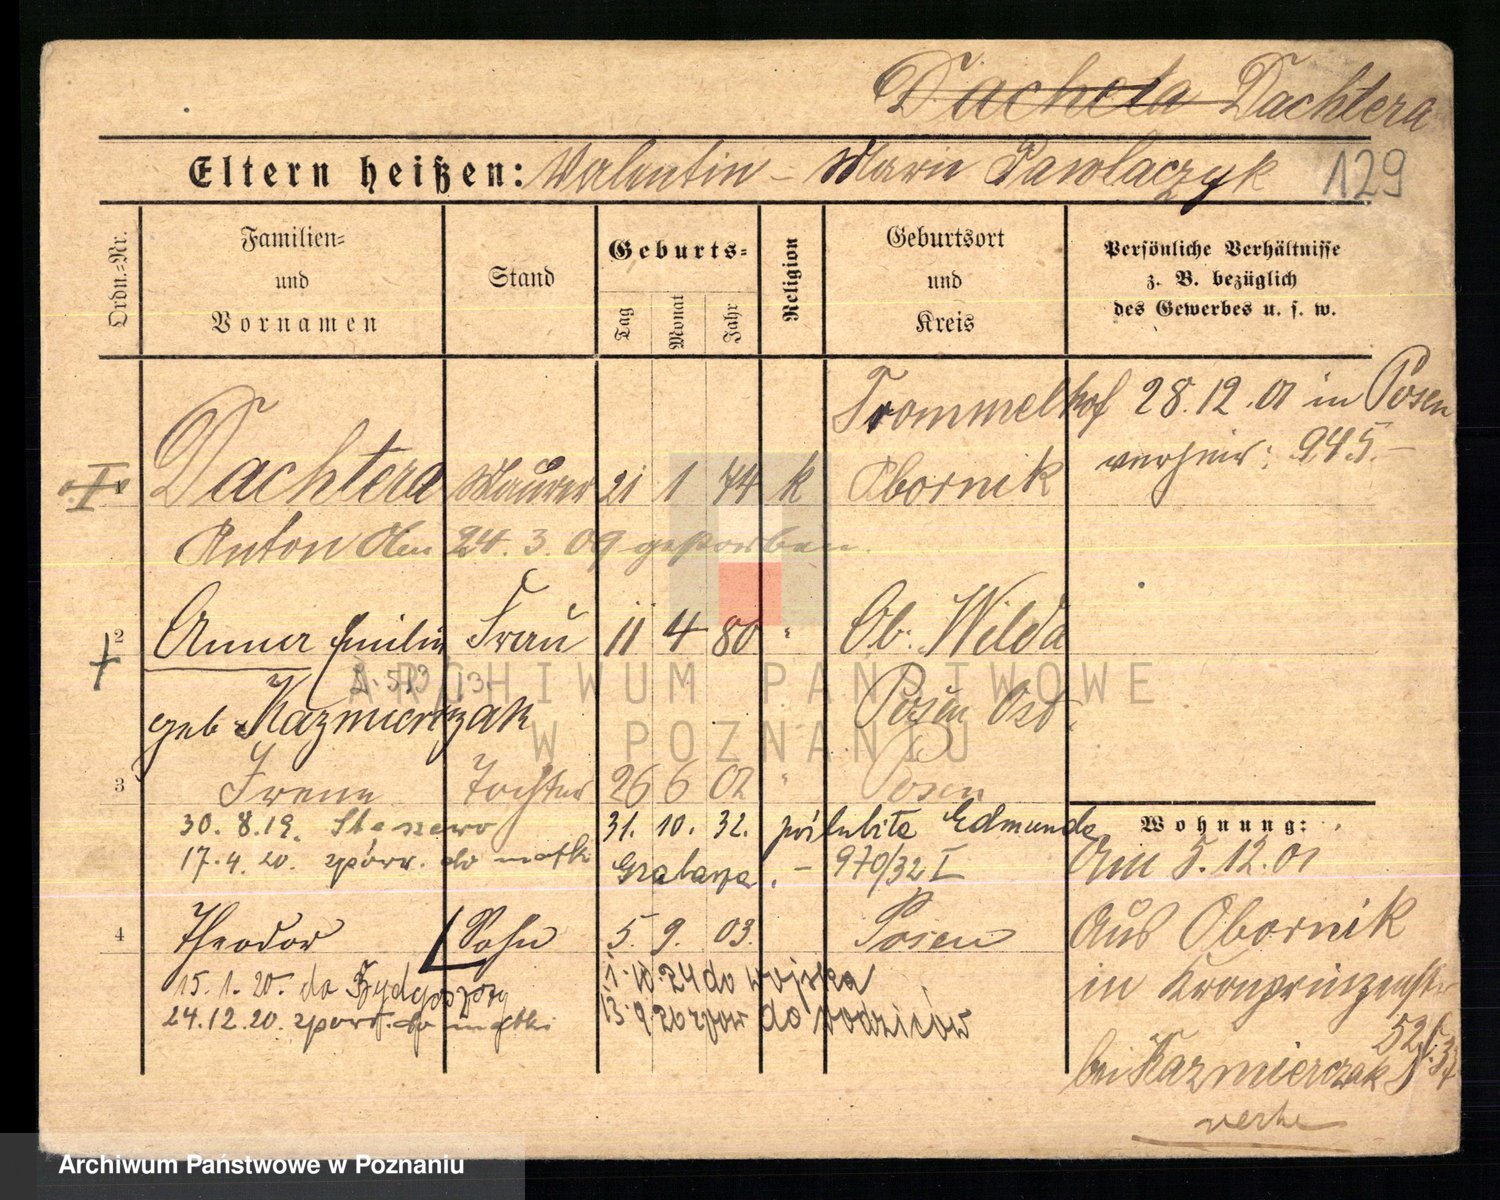 Dacheta Dachtera
Eltern heißen: Valentin – Marie Pawlaczyk 129
Ordn.-Nr.
Familien-
und
Vornamen
Stand
Geburts-
Tag
Monat
Jahr
Religion
Geburtsort
und
Kreis
Persönliche Verhältnisse
z. B. bezüglich
des Gewerbes u. s. w.
Trommelhof 28.12.01 in Posen
Dachtera Maurer 21 1 74 k Obornik verheir: 945.–
Anton Am 24. 3. 09 gestorben.
2 Anna Emilie Frau 11 4 80 " Ob. Wilda
geb. Kazmierczak Posen Ost.
3 Irene Tochter 26 6 02 " Posen
30. 8. 19. Stęszewo 31. 10. 32. poślubiła Edmunda
17. 4. 20. zpowr. do matki Grabarza. – 970/32 I
Wohnung:
Am 5. 12. 01
4 Theodor Sohn 5. 9. 03. Posen
aus Obornik
15. 1. 20. do Bydgoszczy 1.10.24 do wojska
in Kronprinzenstr
24. 12. 20. zpowr. do matki 13.9.26 zpow do rodziców
52
bei Kazmierczak
ARCHIWUM PAŃSTWOWE
W POZNANIU
Archiwum Państwowe w Poznaniu